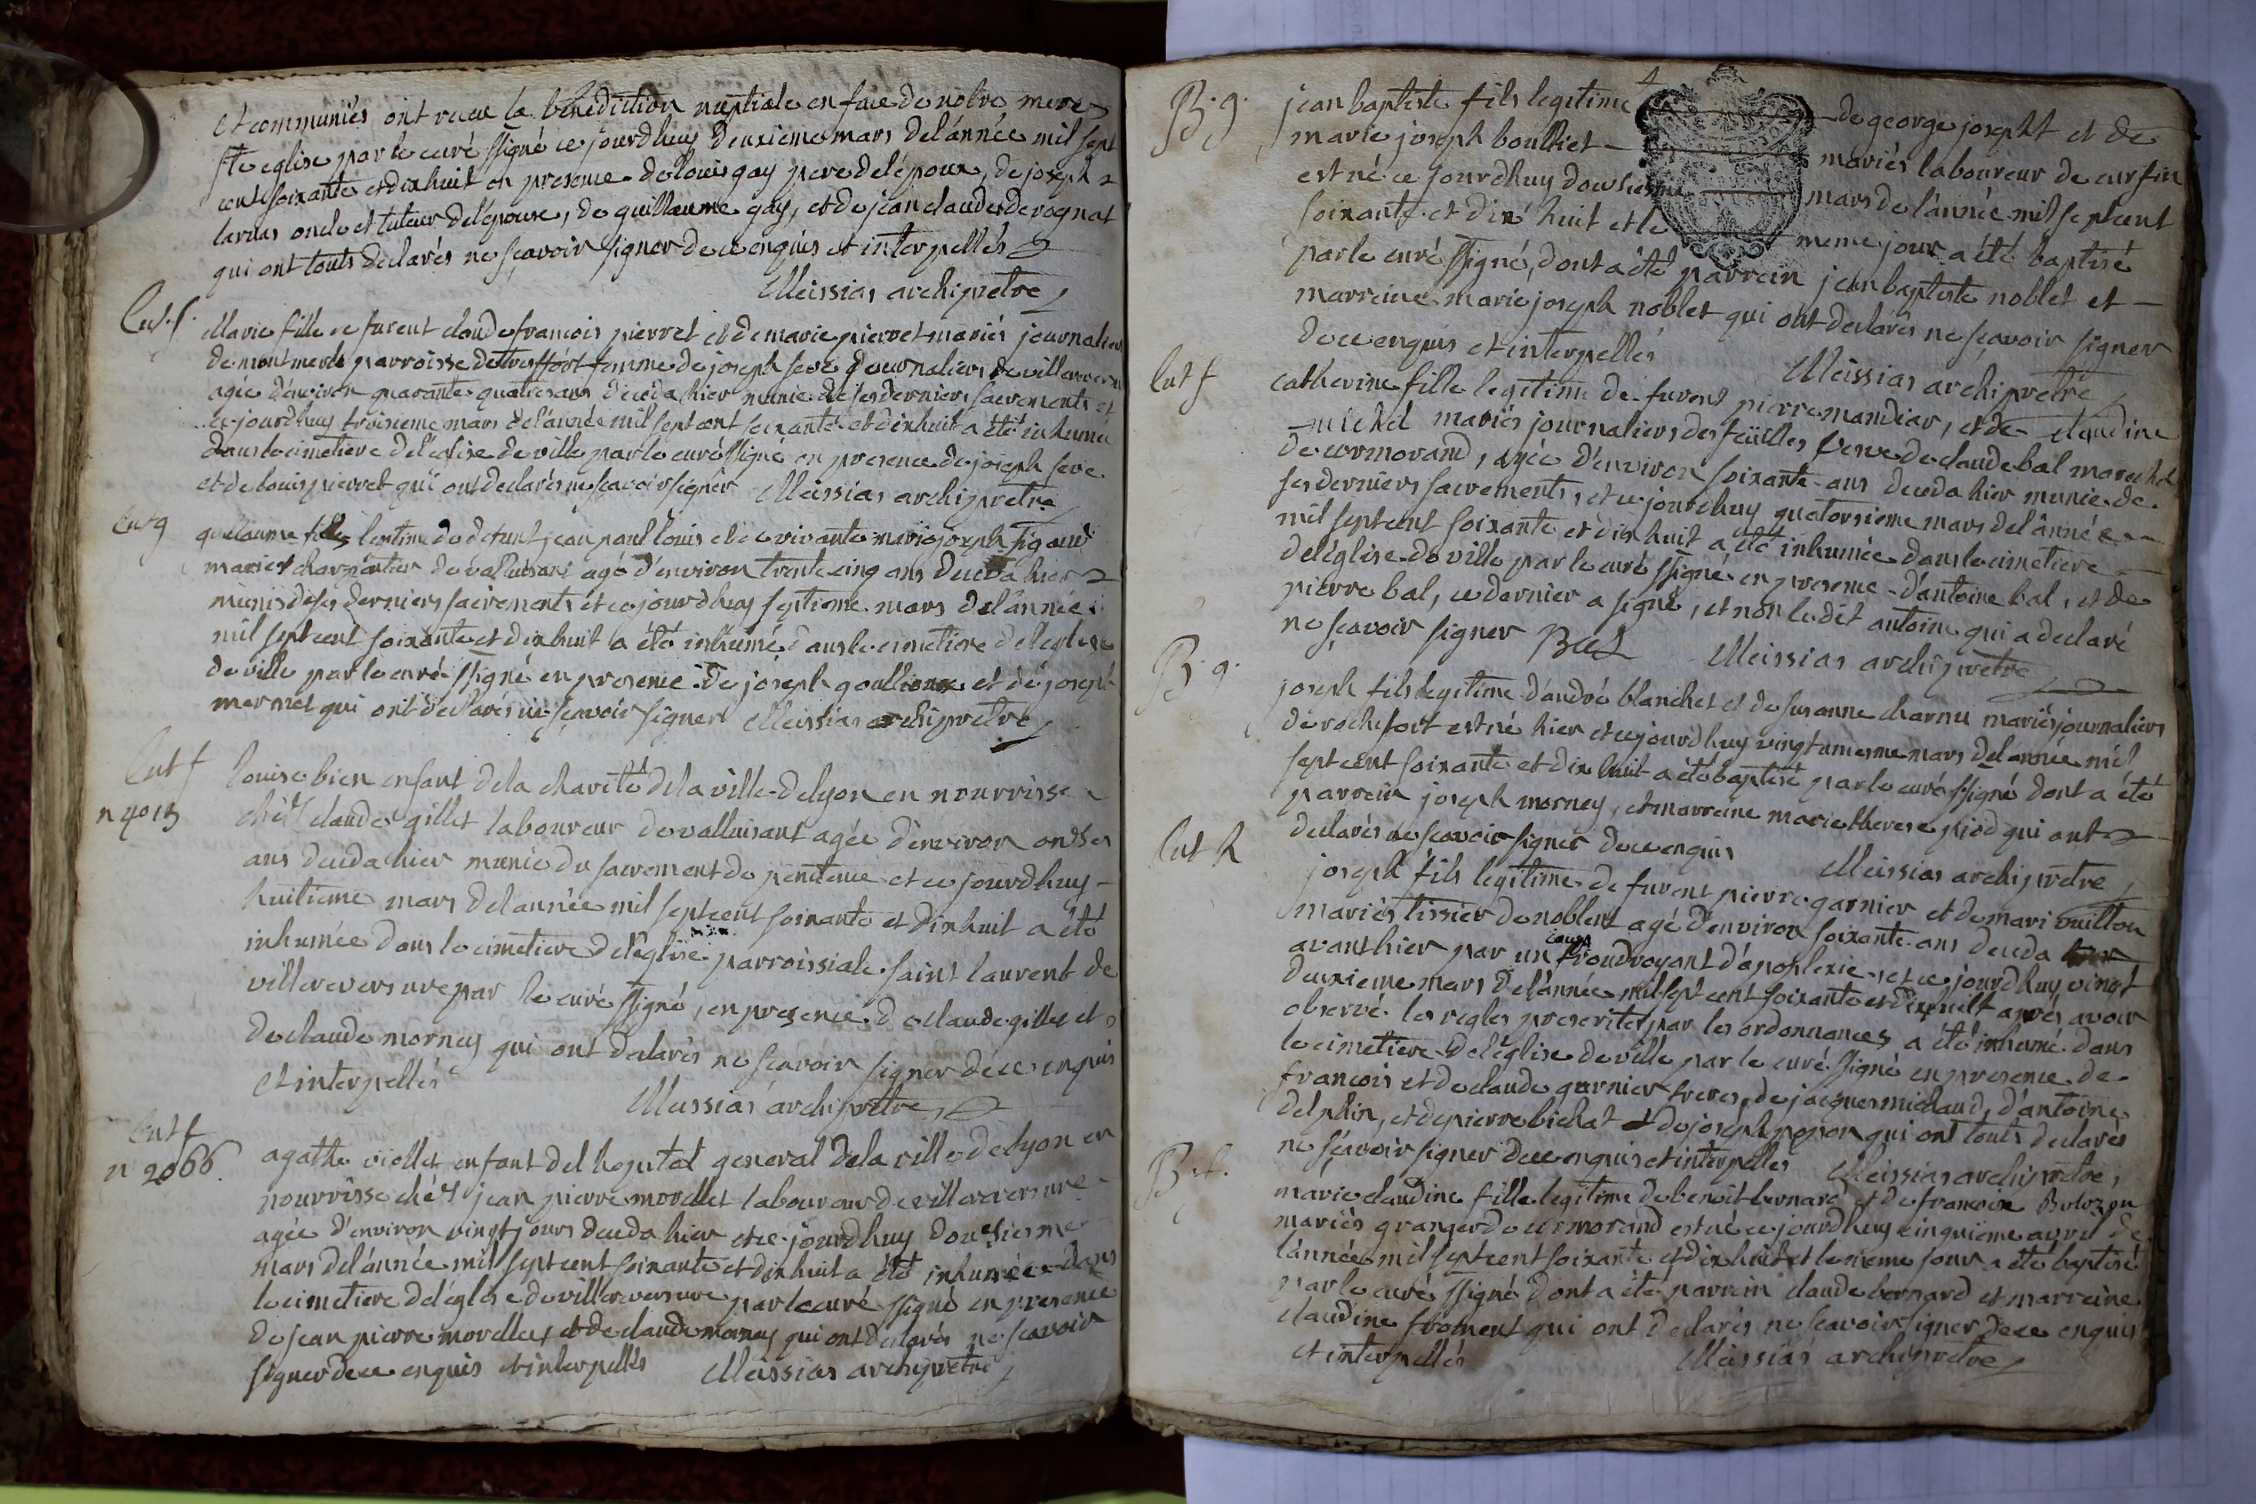 et communiés ont recue la benediction nuptiale en face de notre mere
ste eglise par le curé ssigné ce jourdhuy deuxieme mars de l'année mil sept
cent soixante et dixhuit en presence de louis gay pere de lépoux, de joseph
laruas oncle et tuteur de lépouse, de guillaume gay, et de jean claude derognat
qui ont touts declarés ne sçavoir signer de ce enquis et interpellés
Meissias archipretre
Ent. f.
Marie fille de furent claude francois pierret et de marie pierret mariés journaliers
de montmerle parroisse de treffort femme de joseph seve journaliers de villereversure
agée d'environ quarante quatre ans deceda hier munie de ses derniers sacrements et
ce jourdhuy troisieme mars de l'année mil sept cent soixante et dixhuit a été inhumée
dans le cimetiere de l'eglise de ville par le curé ssigné en presence de joseph seve
et de louis pierret qui ont declarés ne sçavoir signer Meissias archipretre
Ent g
guillaume fils legitime de defunt jean paul louis et de vivante marie joseph sigaud
mariés charpentier de valluisant agé d'environ trente cinq ans deceda hier
munis de ses derniers sacrements et ce jourdhuy septieme mars de l'année
mil sept cent soixante et dixhuit a été inhumé dans le cimetiere de l'eglise
de ville par le curé ssigné en presence de joseph goullioux et de joseph
mermet qui ont declarés ne sçavoir signer Meissias archipretre
Ent f
n 4013
louise bien enfant de la charité de la ville de lyon en nourrisse
chéz claude gillet laboureur de valluisant agée d'environ ondses
ans deceda hier munie du sacrement de penitence et ce jourdhuy
huitieme mars de l'année mil sept cent soixante et dixhuit a été
inhumée dans le cimetiere de l'eglise parroissiale saint laurent de
villereversure par le curé ssigné, en presence de claude gillet et
de claude mornay qui ont declarés ne sçavoir signer de ce enquis
et interpellés
Meissias archipretre
Ent f
n 2066.
agathe viollet enfant del hopital general de la ville de lyon en
nourrisse chéz jean pierre morellet laboureur de villereversure
agée d'environ vingt jours deceda hier et ce jourdhuy dousiesme
mars de l'année mil sept cent soixante et dixhuit a été inhumée dans
le cimetiere de l'église de villereversure par le curé ssigné en presence
de jean pierre morellet et de claude mornay qui ont declarés ne scavoir
signer de ce enquis et interpellés Meissias archipretre
4
B. g.
jean baptiste fils legitime de george josepht et de
marie joseph boulliet mariés laboureur de cursin
est né ce jourdhuy dousiesme mars de l'année mil sept cent
soixante et dix huit et le meme jour a été baptisé
par le curé ssigné, dont a été parrein jean baptiste noblet et
marreine marie joseph noblet qui ont declarés ne sçavoir signer
de ce enquis et interpellés
Meissias archipretre
Ent f
catherine fille legitime de furent pierre mandier, et de claudine
michel mariés journaliers des feüilles veuve de claude bal marechal
de cormorand, agée d'environ soixante ans deceda hier munie de
ses derniers sacrements, et ce jourdhuy quatorsieme mars de l'année
mil sept cent soixante et dixhuit a été inhumée dans le cimetiere
de l'église de ville par le curé ssigné en presence d'antoine bal, et de
pierre bal, ce dernier a signé, et non le dit antoine qui a declaré
ne sçavoir signer Bal Meissias archipretre
B. g.
joseph fils legitime d'andré blanchet et de susanne charnu mariés journaliers
de rochefort est né hier et ce jourdhuy vingtuniesme mars de l'année mil
sept cent soixante et dix huit a été baptisé par le curé ssigné dont a été
parrein joseph mornay, et marreine marie therese piod qui ont
declarés ne scavoir signer de ce enquis
Meissias archipretre
Ent h
joseph fils legitime de furent pierre garnier et de mari vuillon
mariés tissier de noblent agé d'environ soixante ans deceda hier
avant hier par un coup froudroyant d'apoplexie, et ce jourdhuy vingt
deuxieme mars de l'année mil sept cent soixante et dixhuit aprés avoir
observé les regles prescrites par les ordonnances a été inhumé dans
le cimetiere de l'église de ville par le curé ssigné en presence de
francois et de claude garnier freres, de jacques michaud, d'antoine
delphin, et de pierre bichat et de joseph popon qui ont touts declarés
ne sçavoir signer de ce enquis et interpellés Meissias archipretre
B. f.
marie claudine fille legitime de benoit bernard et de francoise Bolozon
mariés granger de cormorand est né ce jourdhuy cinquieme avril de
l'année mil sept cent soixante et dixhuit et le meme jour a été baptisé
par le curé ssigné dont a été parrein claude bernard et marreine
claudine froment qui ont declarés ne scavoir signer de ce enquis
et interpellés
Meissias archipretre